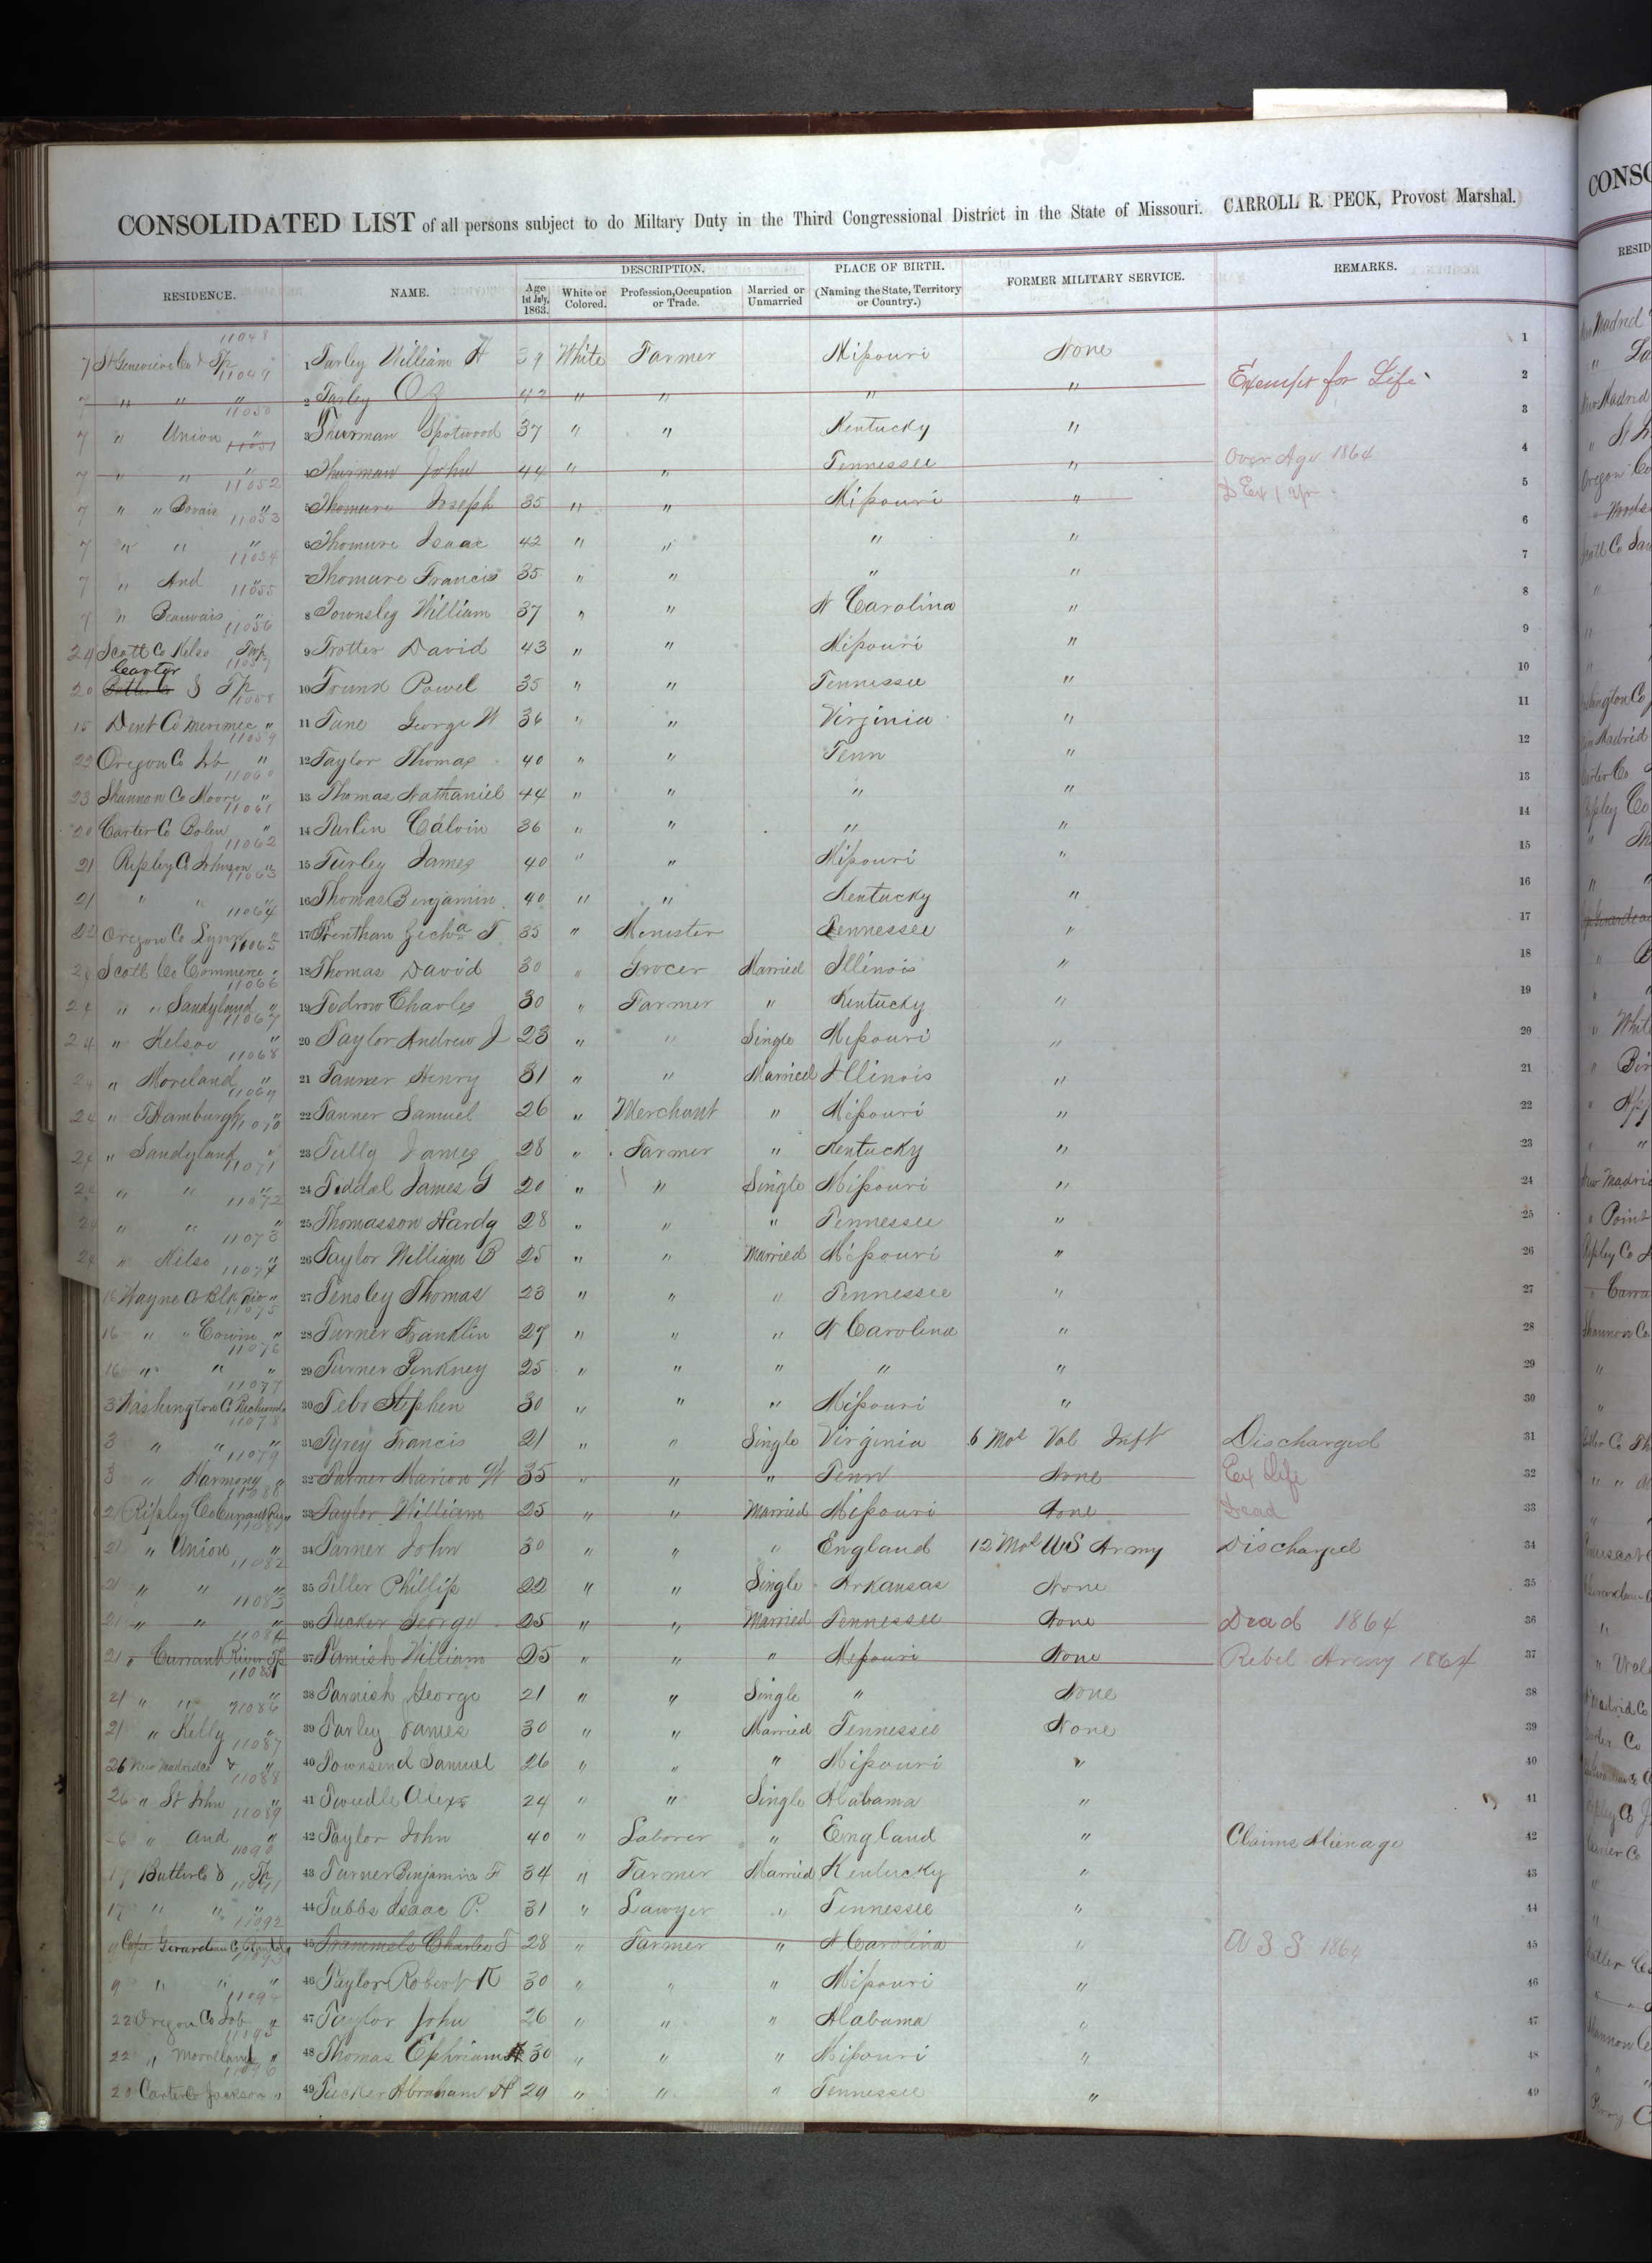 CONSOLIDATED LIST of all persons subject to do Miltary Duty in the Third Congressional District in the State of Missouri. CARROLL R. PECK, Provost Marshal.
RESIDENCE. NAME. DESCRIPTION. PLACE OF BIRTH. FORMER MILITARY SERVICE. REMARKS.
Age 1st July, 1863. White or Colored. Profession, Occupation or Trade. Married or Unmarried (Naming the State, Territory or Country.)
11048
7 St Genevieve Co & Tp 1 Turley William H 39 White Farmer Missouri None 1
11049
7 " " " 2 Turley Oz 42 " " " " Exempt for Life 2
11050
7 " Union " 3 Thurman Spotwood 37 " " Kentucky " 3
11051
7 " " " 4 Thurman John 44 " " Tennessee " Over Age 1864 4
11052
7 " " " 5 Thomure Joseph 35 " " Missouri " 5
11053
7 " " " 6 Thomure Isaac 42 " " " " 6
11054
7 " And " 7 Thomure Francis 35 " " " " 7
11055
7 " Beauvais " 8 Townsley William 37 " " N Carolina " 8
11056
24 Scott Co Kelso Twp 9 Trotter David 43 " " Missouri " 9
11057
Carter
20 Butler Co J Tp 10 Trunx Powel 35 " " Tennessee " 10
11058
15 Dent Co Merimec " 11 Tune George W 36 " " Virginia " 11
11059
22 Oregon Co Job " 12 Taylor Thomas 40 " " Tenn " 12
11060
23 Shannon Co Moore " 13 Thomas Nathaniel 44 " " " " 13
11061
20 Carter Co Bolen " 14 Turlin Calvin 36 " " " " 14
11062
21 Ripley Co Johnson " 15 Turley James 40 " " Missouri " 15
11063
21 " " " 16 Thomas Benjamin 40 " " Kentucky " 16
11064
22 Oregon Co Lynn " 17 Trenthan T 35 " Minister Tennessee " 17
11065
24 Scott Co Commerce " 18 Thomas David 30 " Grocer Married Illinois " 18
11066
24 " " Sandyland " 19 Tedrow Charles 30 " Farmer " Kentucky " 19
11067
24 " Kelsoe " 20 Taylor Andrew J 23 " " Single Missouri " 20
11068
24 " Moreland " 21 Tanner Henry 31 " " Married Illinois " 21
11069
24 " Hamburgh " 22 Tanner Samuel 26 " Merchant " Missouri " 22
11070
24 " Sandyland " 23 Tully James 28 " Farmer " Kentucky " 23
11071
24 " " " 24 Tiddel James G 20 " " Single Missouri " 24
11072
24 " " " 25 Thomasson Hardy 28 " " " Tennessee " 25
11073
24 " Kelso " 26 Taylor William B 25 " " Married Missouri " 26
11074
16 Wayne Co Blk Riv " 27 Tensley Thomas 23 " " " Tennessee " 27
11075
16 " " Cowin " 28 Turner Franklin 27 " " " N Carolina " 28
11076
16 " " " 29 Turner Pinkney 25 " " " " " 29
11077
3 Washington Co Richwoods 30 Tebo Stephen 30 " " " Missouri " 30
11078
3 " " " 31 Tyrey Francis 21 " " Single Virginia 6 Mos Vol Inft Discharged 31
11079
3 " Harmony " 32 Turner Marion W 35 " " " Tenn None Ex Life 32
21 Ripley Co Currant River 33 Taylor William 25 " " Married Missouri None Dead 33
21 " Union " 34 Tarner John 30 " " " England 12 Mos US Army Discharged 34
11082
21 " " " 35 Teller Phillip 22 " " Single Arkansas None 35
11083
21 " " " 36 Tucker George 25 " " Married Tennessee None Dead 1864 36
11084
21 " Currant River Tp 37 Tamish William 25 " " " Missouri None Rebel Army 1864 37
11085
21 " " " 38 Tarnish George 21 " " Single " None 38
11086
21 " Kelly " 39 Turley James 30 " " Married Tennessee None 39
11087
26 New Madrid Co & " 40 Townsend Samuel 26 " " " Missouri " 40
11088
26 " St John " 41 Tweedle Alex 24 " " Single Alabama " 41
11089
26 " And " 42 Taylor John 40 " Laborer " England " Claims Alienage 42
11090
17 Butler Co & Tp 43 Turner Benjamin F 34 " Farmer Married Kentucky " 43
11091
17 " " " 44 Tubbs Isaac P. 31 " Lawyer " Tennessee " 44
11092
9 Cape Girardeau Co 45 Trammels Charles T 28 " Farmer " N Carolina " 1864 45
11093
9 " " " 46 Taylor Robert K 30 " " " Missouri " 46
11094
22 Oregon Co Job " 47 Taylor John 26 " " " Alabama " 47
11095
22 " Mooreland " 48 Thomas Ephriam 30 " " " Missouri " 48
11096
20 Carter Co Jackson " 49 Tucker Abraham H 29 " " " Tennessee " 49